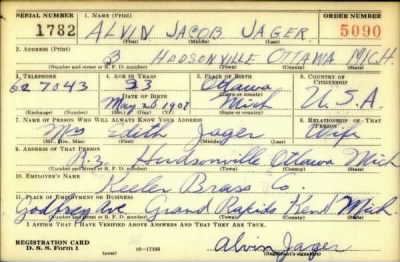 SERIAL NUMBER 1. NAME (Print) ORDER NUMBER
1782 ALVIN JACOB JAGER 5090
(First) (Middle) (Last)
2. ADDRESS (Print)
3 HUDSONVILLE OTTAWA MICH.
(Number and street or R. F. D. number) (Town) (County) (State)
3. TELEPHONE 4. AGE IN YEARS 5. PLACE OF BIRTH 6. COUNTRY OF CITIZENSHIP
7043 33 Ottawa
DATE OF BIRTH (Town or county)
May 26 1907 Mich U.S.A.
(Exchange) (Number) (Mo.) (Day) (Yr.) (State or country)
7. NAME OF PERSON WHO WILL ALWAYS KNOW YOUR ADDRESS 8. RELATIONSHIP OF THAT PERSON
Mrs Edith Jager Wife
(Mr., Mrs., Miss) (First) (Middle) (Last)
9. ADDRESS OF THAT PERSON
R.3. Hudsonville Ottawa Mich
(Number and street or R. F. D. number) (Town) (County) (State)
10. EMPLOYER'S NAME
Keeler Brass Co.
11. PLACE OF EMPLOYMENT OR BUSINESS
Godfrey Ave Grand Rapids Kent Mich.
(Number and street or R. F. D. number) (Town) (County) (State)
I AFFIRM THAT I HAVE VERIFIED ABOVE ANSWERS AND THAT THEY ARE TRUE.
REGISTRATION CARD
D. S. S. Form 1 16-17105 Alvin Jager
(Registrant's signature)